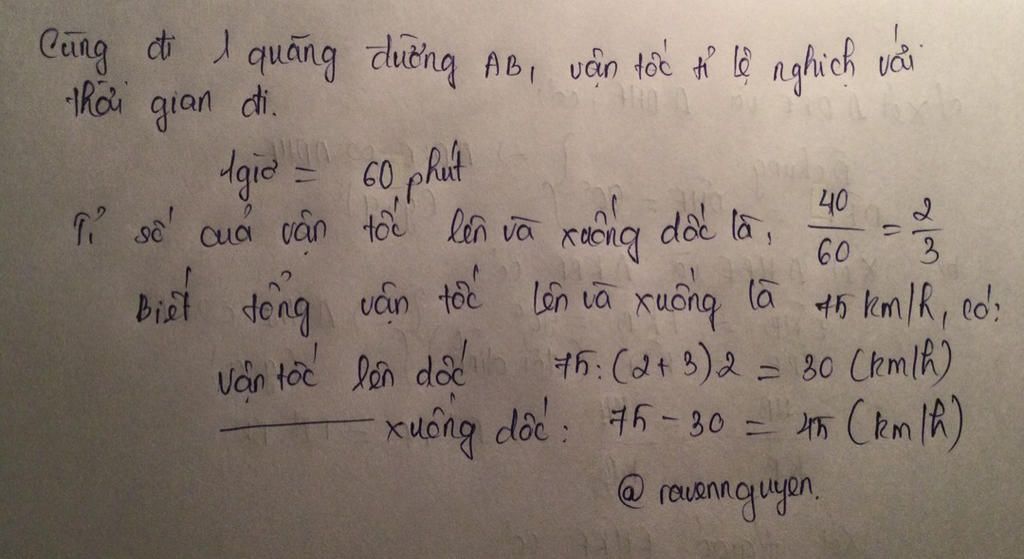 Cùng đi 1 quãng đường AB, vận tốc tỉ lệ nghịch với
thời gian đi.
1giờ = 60 phút
Tỉ số của vận tốc lên và xuống dốc là, 40/60 = 2/3
Biết tổng vận tốc lên và xuống là 75 km/h, có:
vận tốc lên dốc 75: (2+3)2 = 30 (km/h)
——— xuống dốc: 75 - 30 = 45 (km/h)
@ ravennguyen.